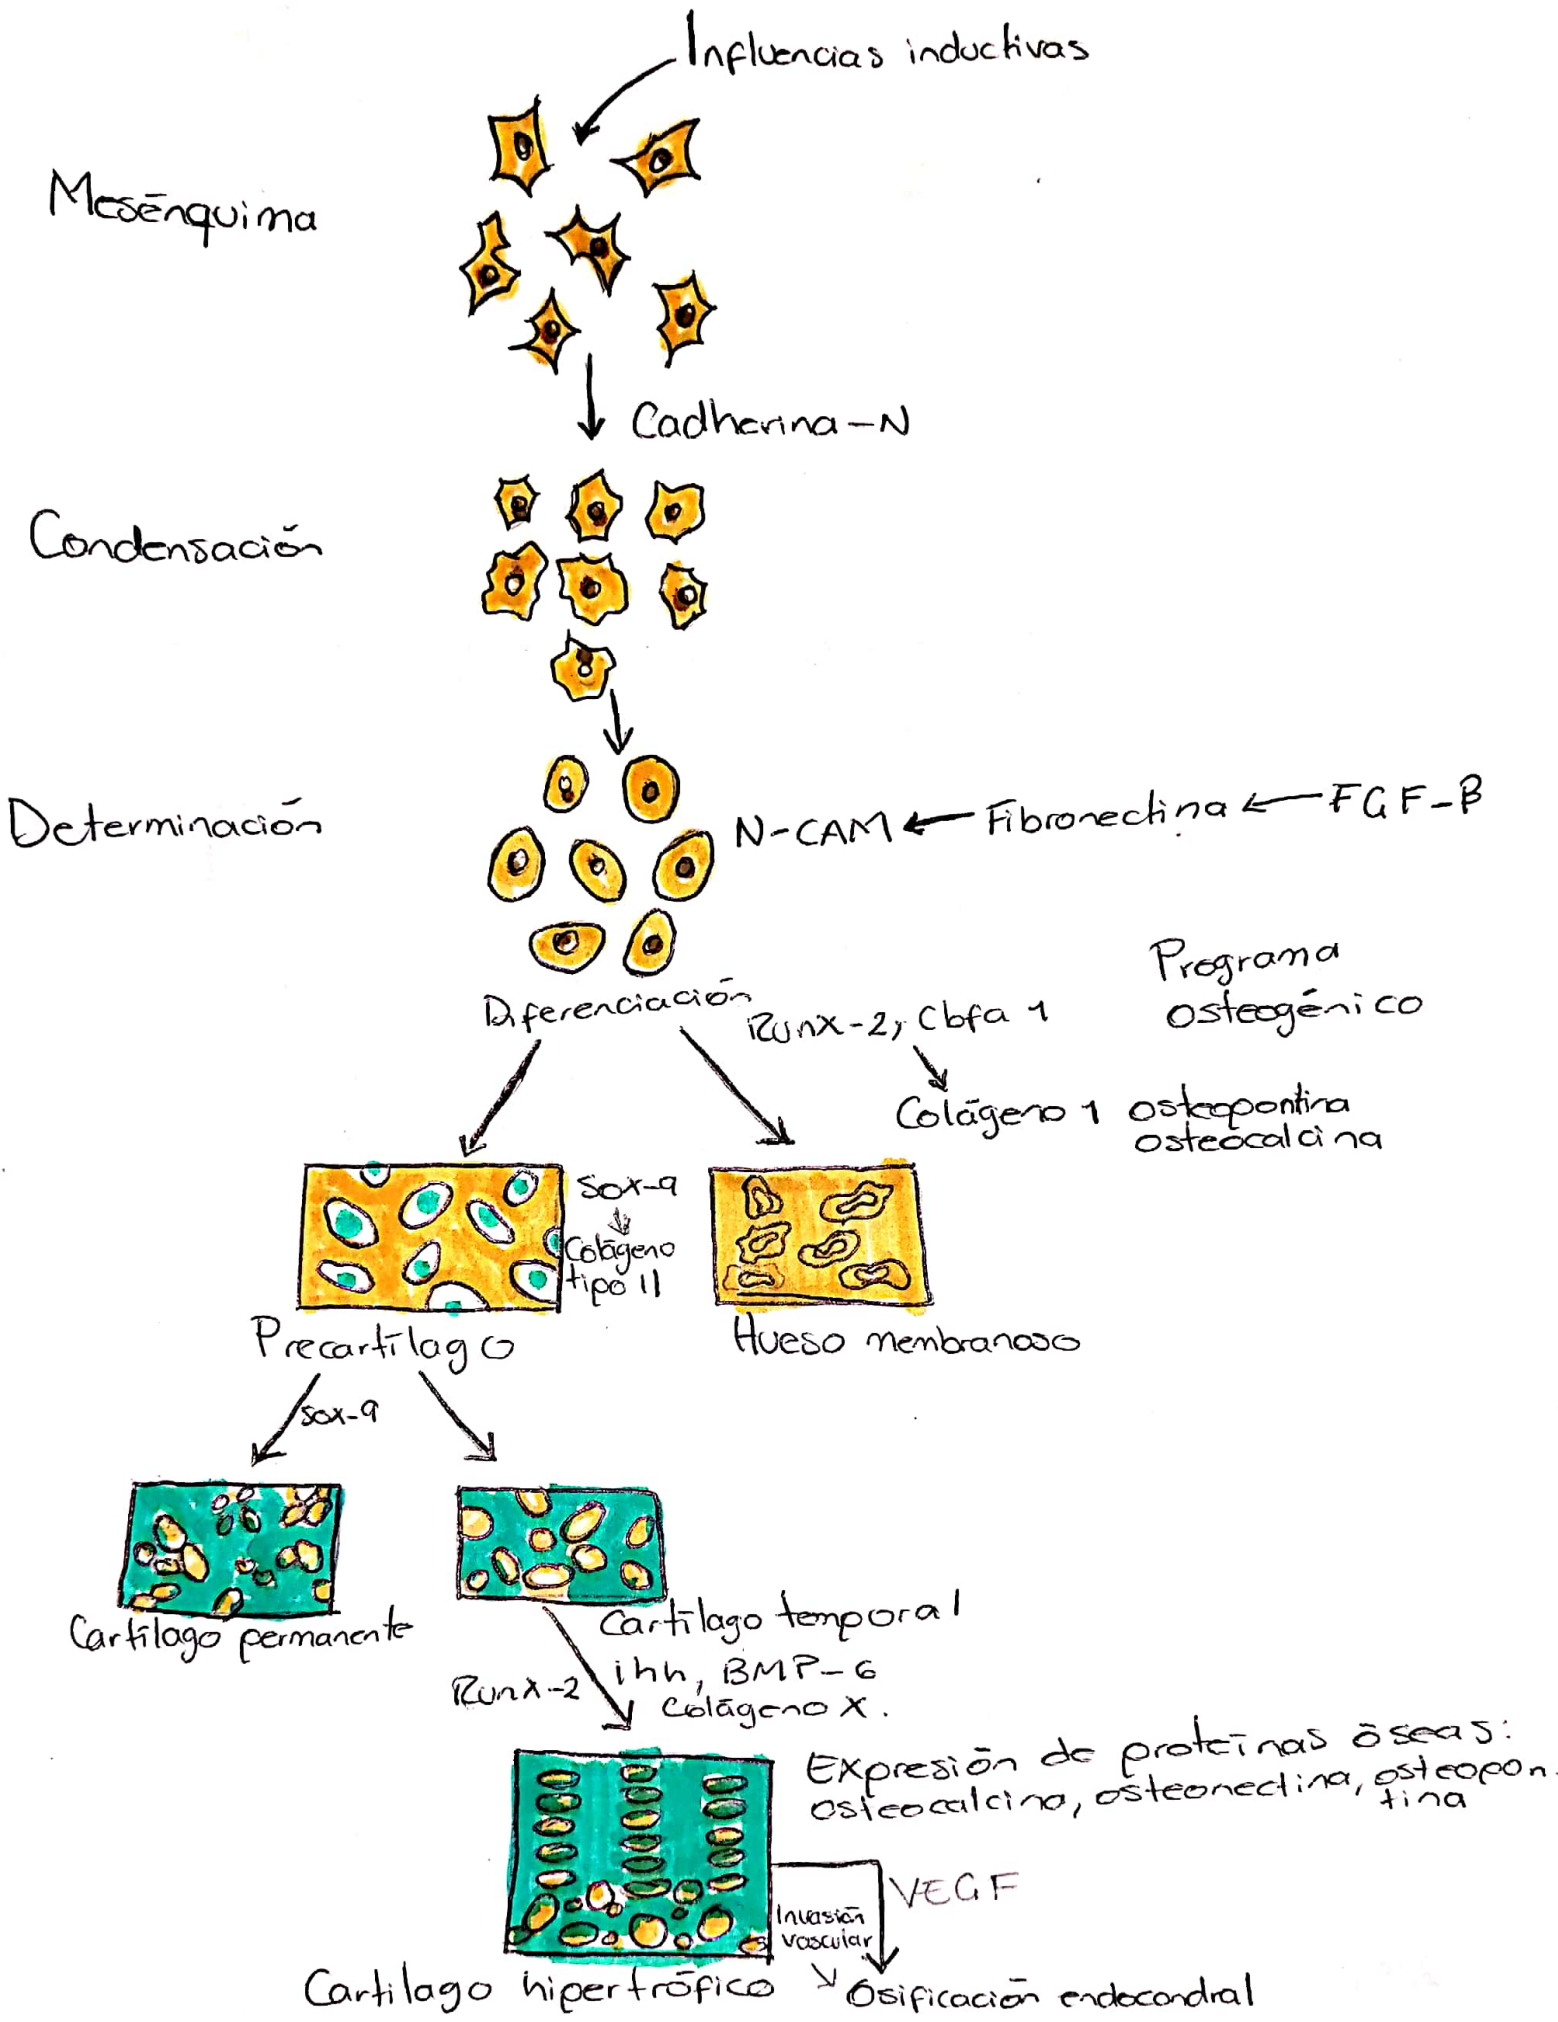 Influencias inductivas
Mesēnquima
Cadherina-N
Condensación
Determinación
N-CAM ← Fibronectina ← FGF-B
Diferenciación
Programa
osteogénico
Runx-2, Cbfa 1
Colāgeno 1 osteopontina
osteocalcina
Sox-9
Colāgeno
tipo II
Precartīlago
Hueso membranoso
Sox-9
Cartīlago permanente
Cartīlago temporal
Runx-2
ihh, BMP-6
Colāgeno X.
Expresiōn de proteīnas ōseas:
osteocalcina, osteonectina, osteopon.
tina
VEGF
Invasiōn
vascular
Cartilago hipertrōfico
Osificaciōn endocondral